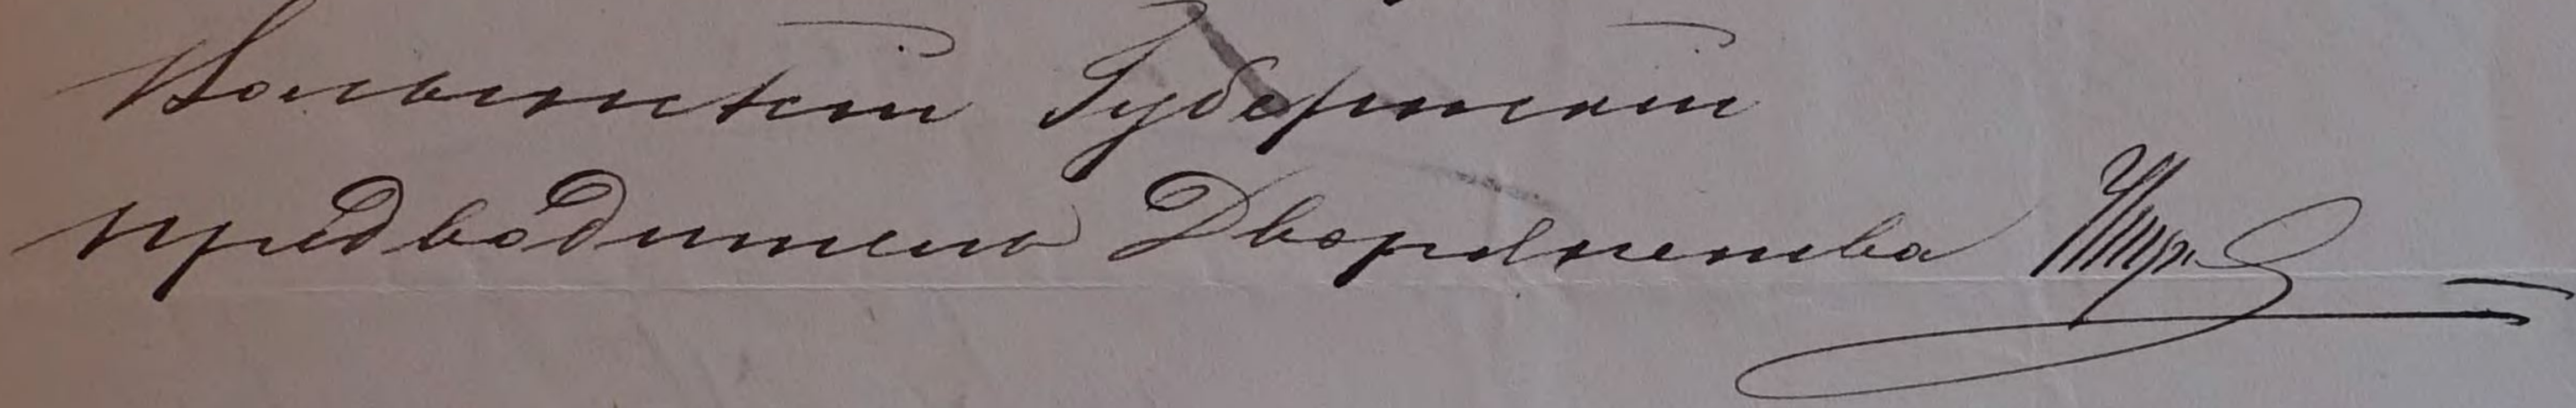 Волынскій Губернскій
предводитель Дворянства